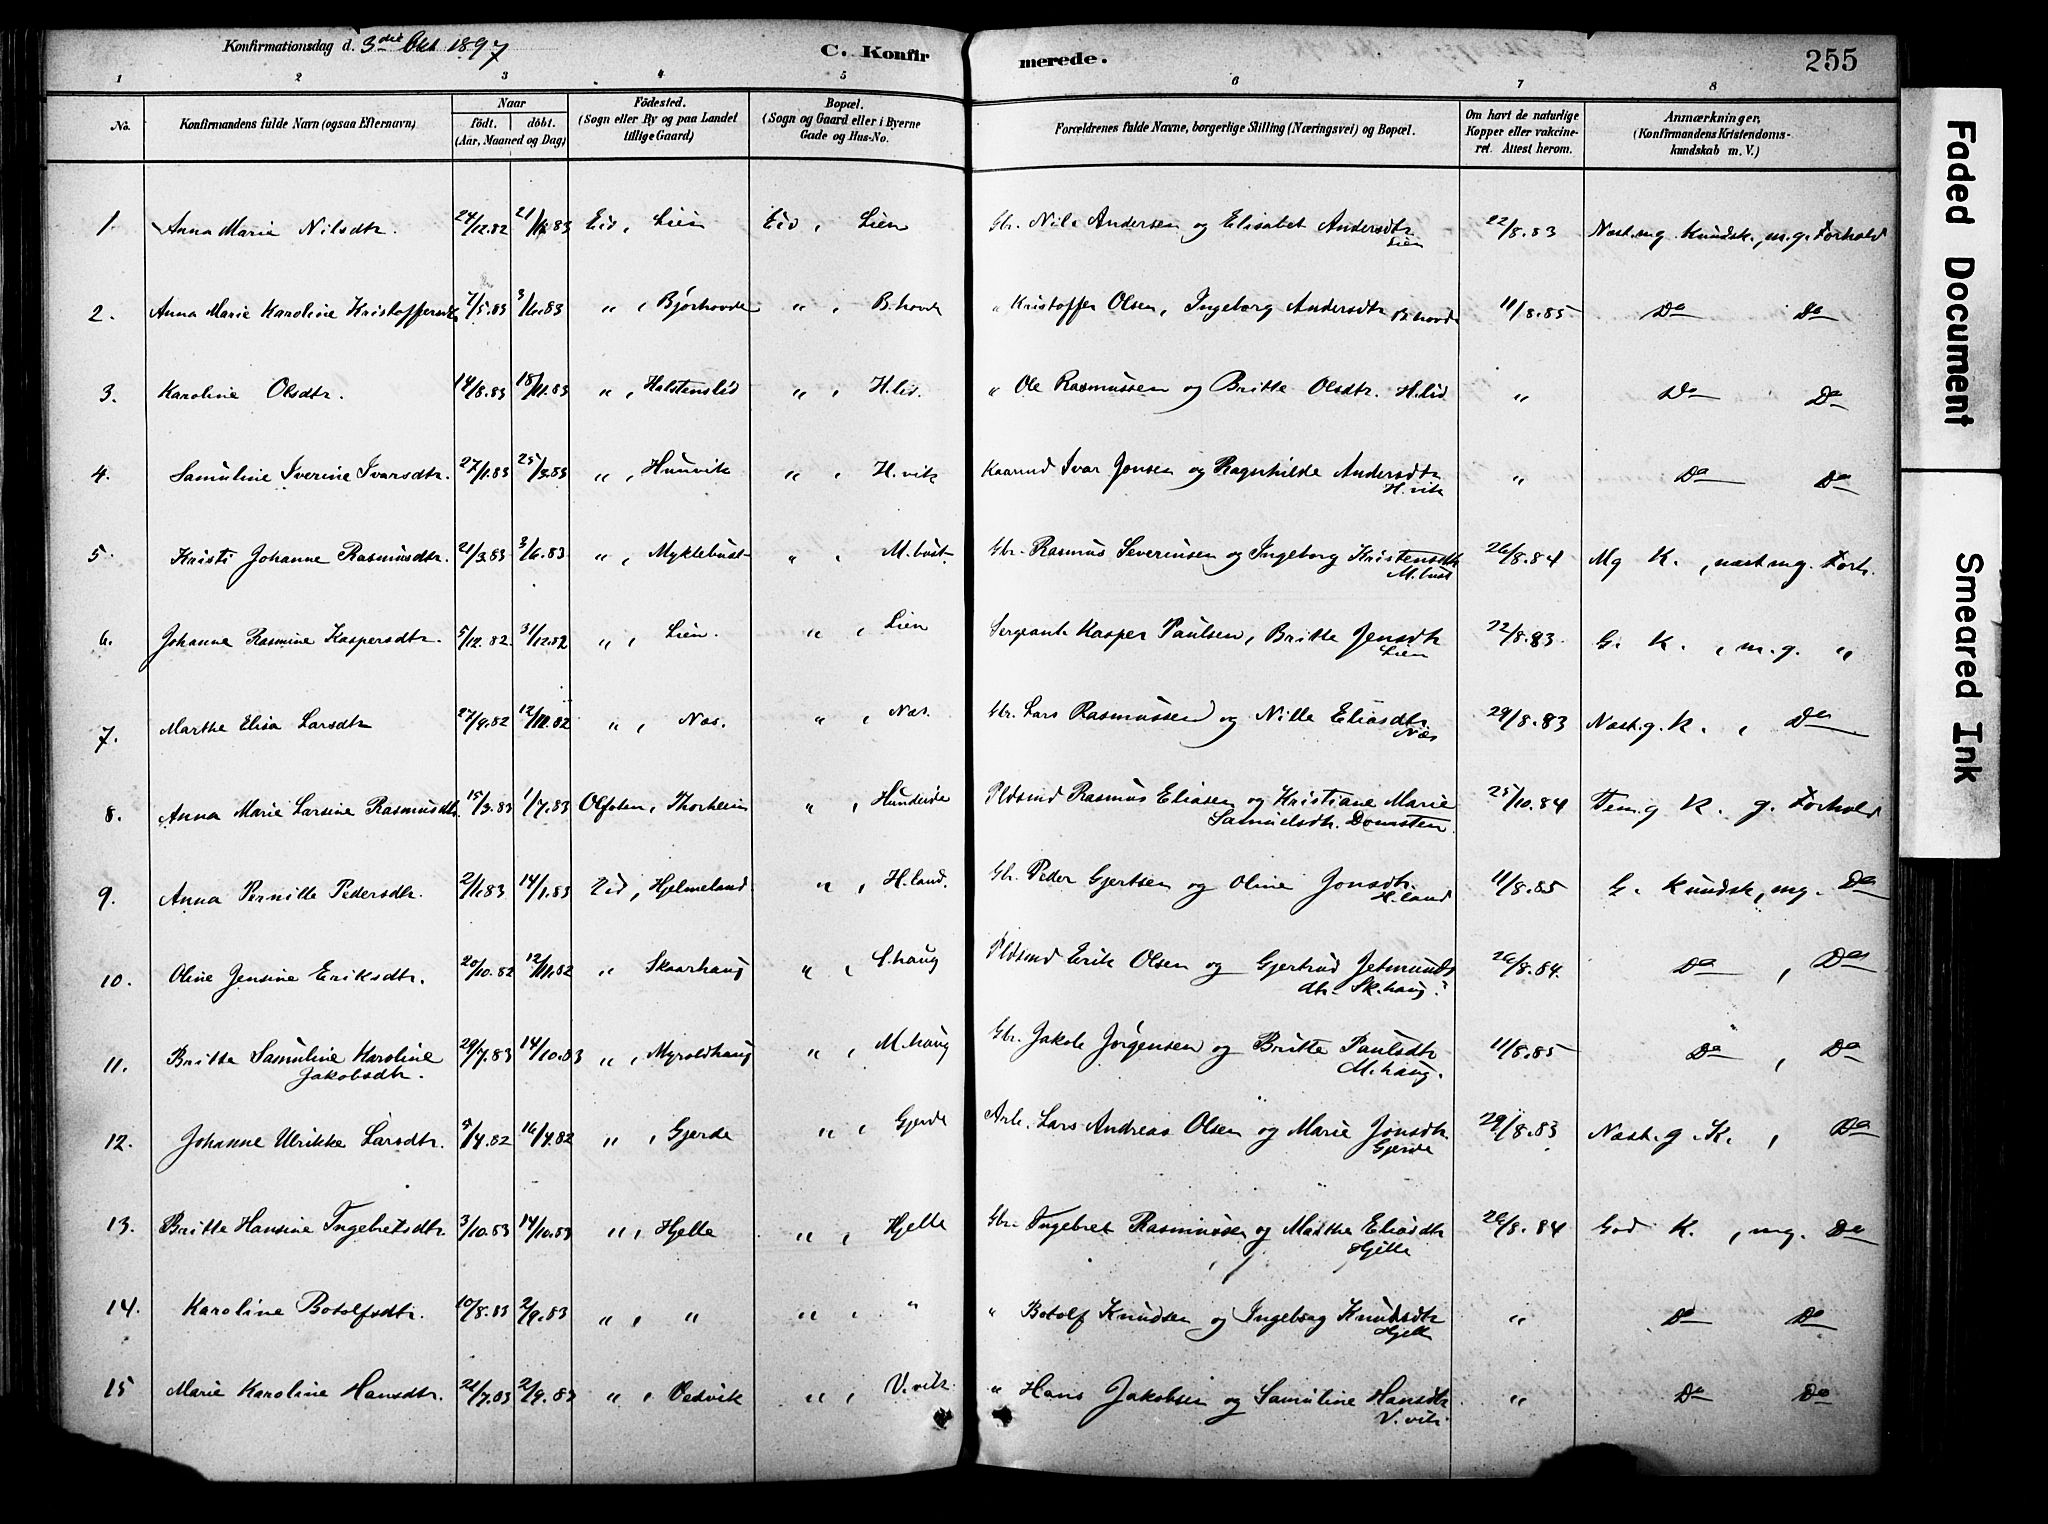 Konfirmationsdag d. 3die Okt 1897
C. Konfirmerede.
255
1 2 3 4 5 6 7 8
No.
Konfirmandens fulde Navn (ogsaa Efternavn)
Naar
födt. döbt.
(Aar, Maaned og Dag)
Födested.
(Sogn eller By og paa Landet
tillige Gaard)
Bopæl.
(Sogn og Gaard eller i Byerne
Gade og Hus-No.
Forældrenes fulde Navne, borgerlige Stilling (Næringsvei) og Bopæl.
Om havt de naturlige
Kopper eller vakcine-
ret. Attest herom.
Anmærkninger,
(Konfirmandens Kristendoms-
kundskab m. V.)
1. Anna Marie Nilsdtr. 24/12.82 21/ .83 Eid, Lien Eid, Lien Gbr. Nils Andersen og Elisabet Andersdtr. Lien 22/8.83 Næst.mg Kundsk., m.g. Forhold
2. Anna Marie Karoline Kristoffersdtr 7/5.83 3/6.83 " , Bjørhovde " , B.hovde " Kristoffer Olsen, Ingeborg Andersdtr B.hovde 11/8.85 Do Do
3. Karoline Olsdtr. 14/8.83 18/11.83 " , Holstenslid " , H.lid. " Ole Rasmussen og Britte Olsdtr. H.lid " Do Do
4. Samuline Iverine Ivarsdtr. 27/1.83 25/3.83 " , Hunvik " , H.vik Kaarmd Ivar Jonsen og Ragnhilde Andersdtr H.vik " Do Do
5. Kristi Johanne Rasmusdtr. 21/3.83 3/6.83 " , Myklebust " , M.bust. Gbr. Rasmus Severinsen og Ingeborg Kristensdtr M.bust 26/8.84 Mg K. , næst mg. Forh.
6. Johanne Rasmine Kaspersdtr. 5/12.82. 31/12.82 " , Lien. " , Lien Sergeant Kasper Paulsen, Britte Jensdtr Lien 22/8.83 G. K. , m.g. "
7. Marthe Elisa Larsdtr 27/9.82 12/11.82 " , Næs. " , Næs. Gbr. Lars Rasmussen og Nille Eliasdtr. Næs 29/8.83 Næst.g.K. , Do
8. Anna Marie Larsine Rasmusdtr. 15/3.83 1/7.83 Olfoten, Thorheim " , Hundeide Pldsmd Rasmus Eliasen og Kristiane Marie Samuelsdtr. Domsten. 25/10.84 Tem.g K. g. Forhold
9. Anna Pernille Pedersdtr. 2/1.83 14/1.83 Eid, Hjelmeland " , H.land. Gbr. Peder Gjertsen og Oline Jonsdtr. H.land 11/8.85 G. Kundsk, mg. Do
10. Oline Jensine Eriksdtr. 20/10.82 12/11.82 " Skaarhaug " , S.haug Pldsmd Erik Olsen og Gjertrud Jetmundsdtr. Sk.haug. 26/8.84. Do , Do
11. Britte Samuline Karoline Jakobsdtr. 29/7.83 14/10.83 " , Myroldhaug " , M.haug Gbr. Jakob Jørgensen og Britte Paulsdtr M.haug. 11/8.85 Do , Do
12. Johanne Ulrikke Larsdtr. 5/4.82 16/4.82 " , Gjerde " , Gjerde Arb. Lars Andreas Olsen og Marie Jonsdtr. Gjerde 29/8.83 Næst.g.K. , Do
13. Britte Hansine Ingebretsdtr 3/10.83 14/10.83 " , Hjelle " , Hjelle Gbr. Ingebret Rasmussen og Marthe Eliasdtr Hjelle 26/8.84 God K. , mg. Do
14. Karoline Botolfsdtr. 10/8.83 2/9.83 " , " " , " " Botolf Knudsen og Ingeborg Knudsdtr Hjelle " Do Do
15 Marie Karoline Hansdtr. /7.83 2/9.83 " , Vedvik " , V.vik. " Hans Jakobsen og Samuline Hansdtr V.vik " Do Do
Faded Document
Smeared Ink